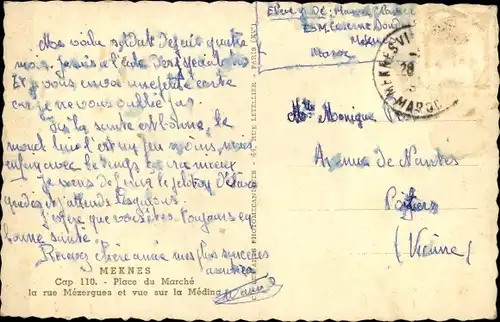 Me voila soldat depuis quatre
mois. Je suis a
Et vous envoie une petite carte
car je ne vous oublie pas.
La santé est bonne, le
moral lui l'est un peu moins, mais
enfin avec le temps ira mieux
Je viens de finir le peloton d'élèves
gradés et j'attends
J'espère que vous êtes toujours en
bonne santé.
Recevez chère amie mes plus sincères
amitiés
MEKNES
Cap 110. - Place du Marché
la rue Mézergues et vue sur la Médina
Meknes
Maroc
MEKNES
28
MAROC
PHOTOMECANIQUE - 44, RUE LETELLIER - PARIS (XVe)
Mlle Monique
Avenue de Nantes
Poitiers
(Vienne)